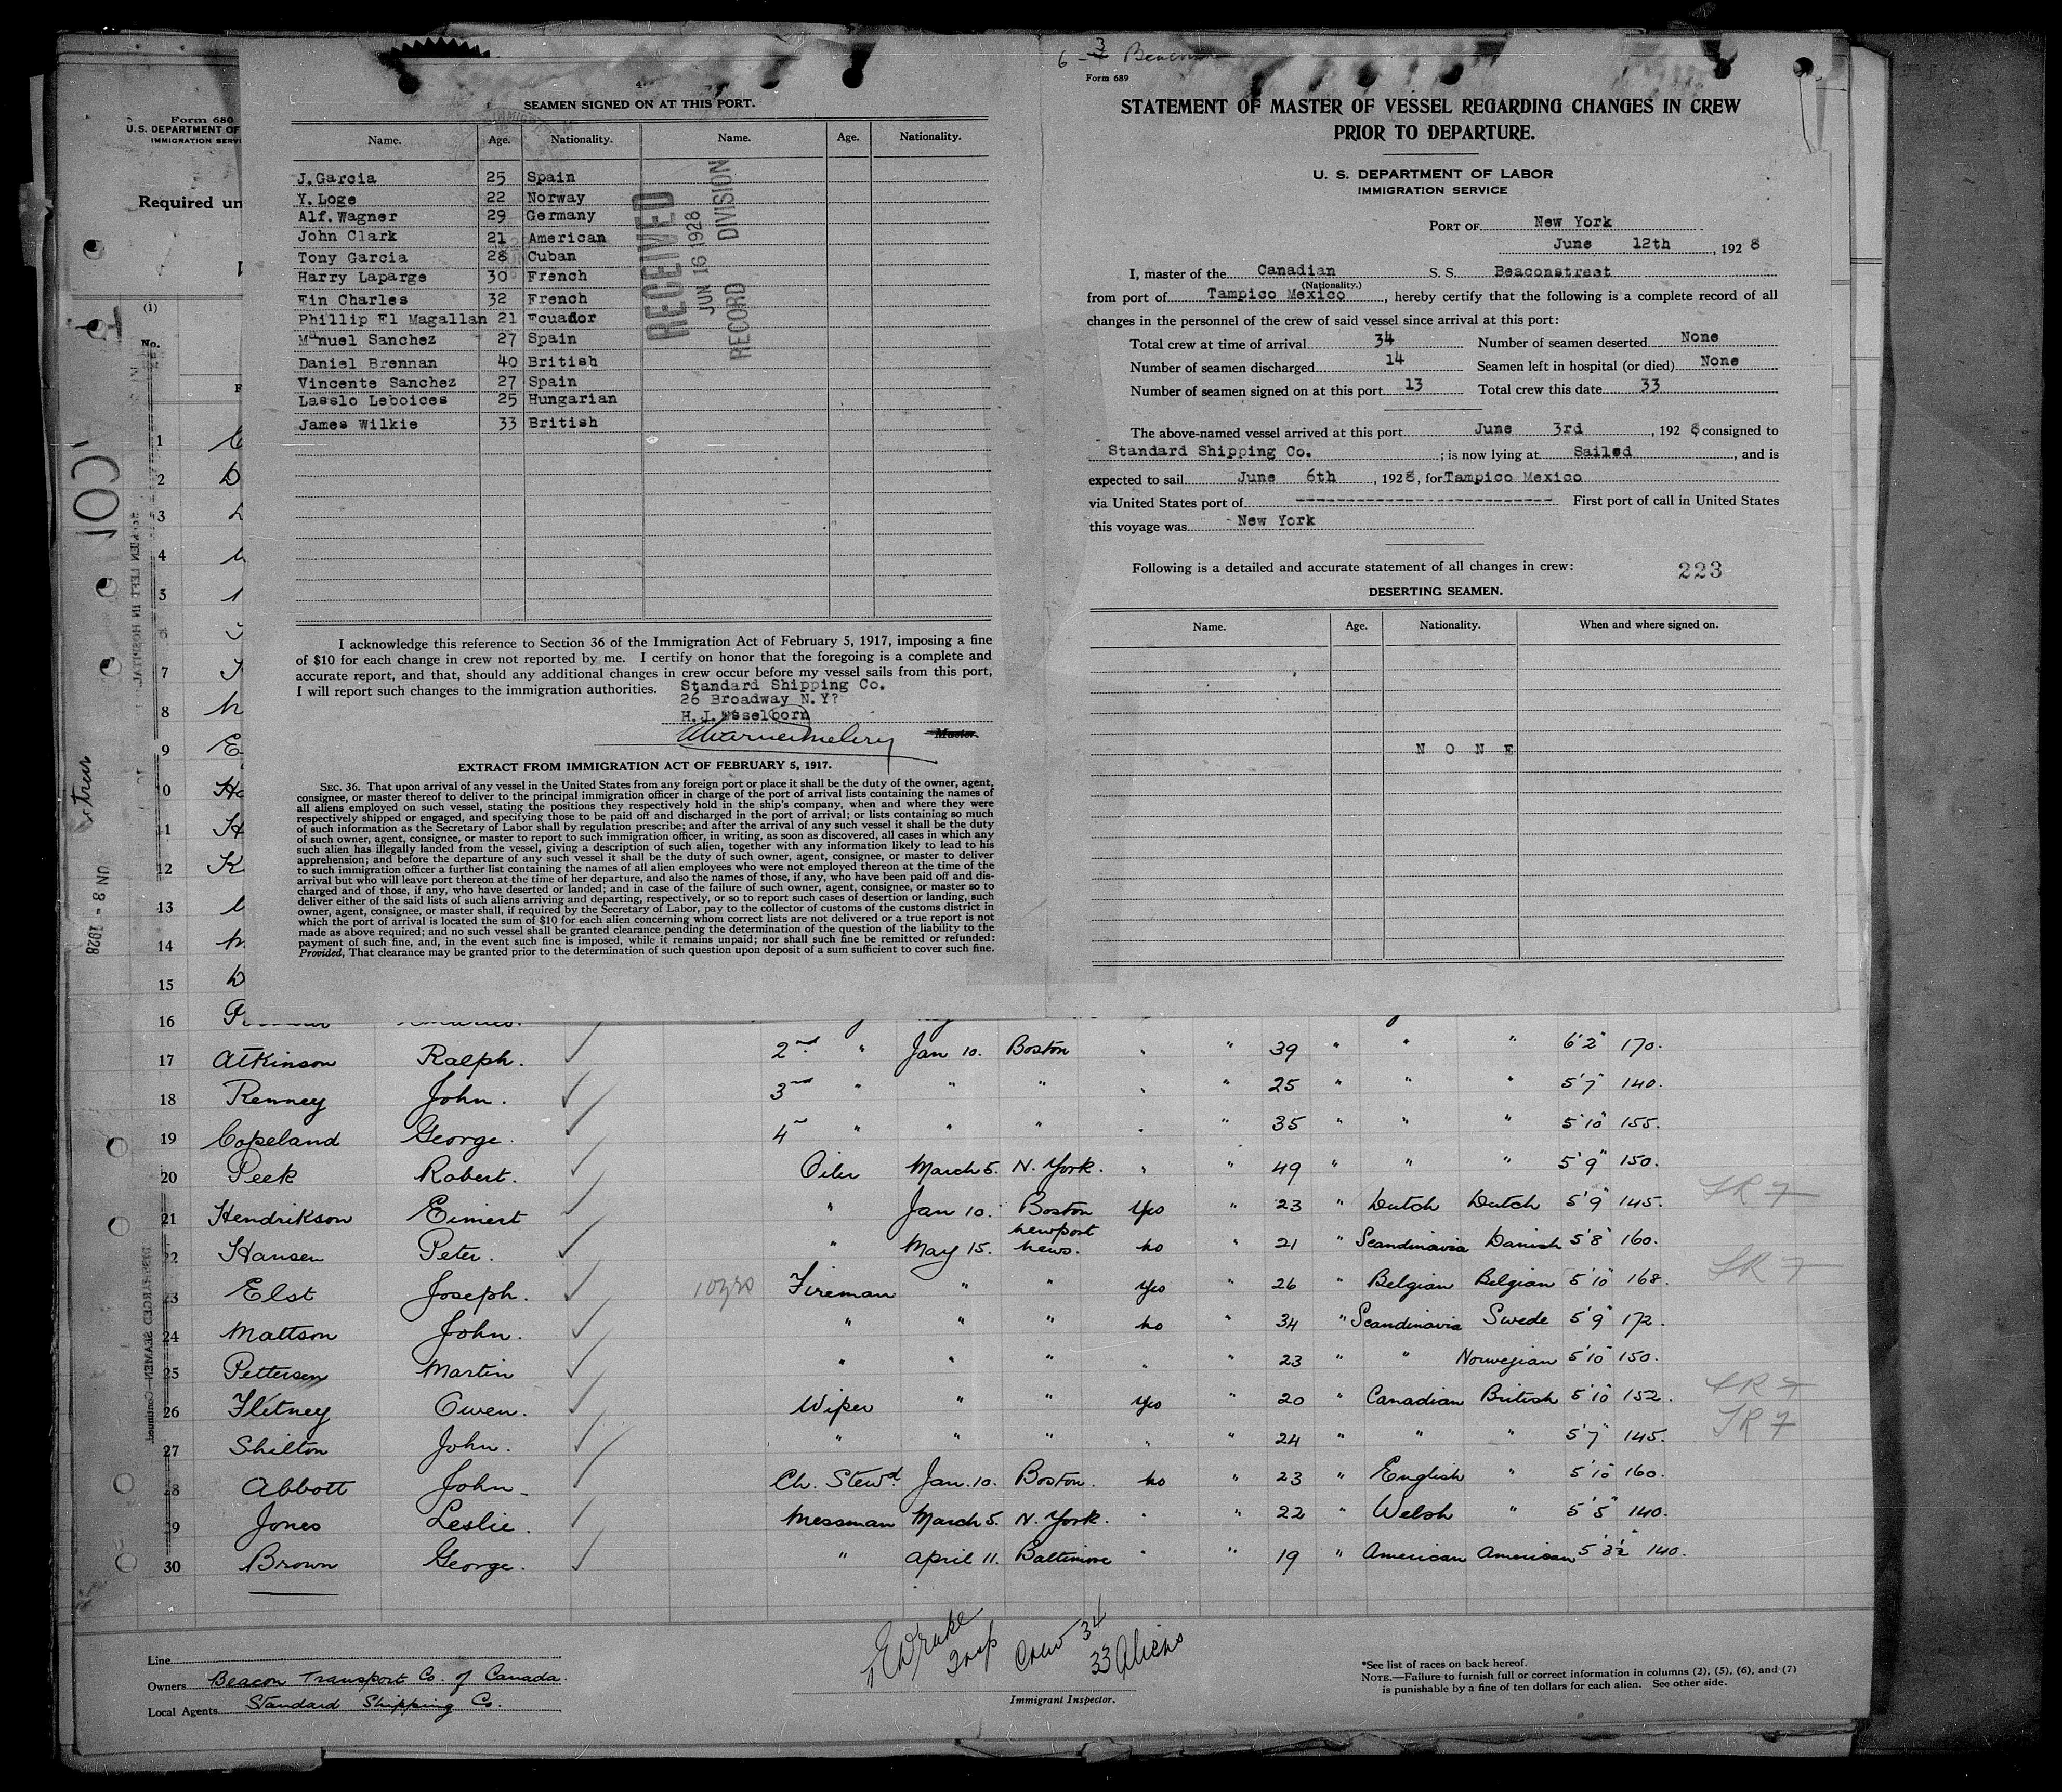 6 - 3
Form 689
4
SEAMEN SIGNED ON AT THIS PORT.
Name. Age. Nationality. Name. Age. Nationality.
J.Garcia 25 Spain
Y. Loge 22 Norway
Alf.Wagner 29 Germany
John Clark 21 American
Tony Garcia 28 Cuban
Harry Laparge 30 French
Ein Charles 32 French
Phillip El Magallan 21 Ecuador
Manuel Sanchez 27 Spain
Daniel Brennan 40 British
Vincente Sanchez 27 Spain
Lasslo Leboices 25 Hungarian
James Wilkie 33 British
RECEIVED
JUN 16 1928
RECORD DIVISION
I acknowledge this reference to Section 36 of the Immigration Act of February 5, 1917, imposing a fine
of $10 for each change in crew not reported by me. I certify on honor that the foregoing is a complete and
accurate report, and that, should any additional changes in crew occur before my vessel sails from this port,
I will report such changes to the immigration authorities.
Standard Shipping Co.
26 Broadway N.Y?
H.J.Esselborn
Master.
EXTRACT FROM IMMIGRATION ACT OF FEBRUARY 5, 1917.
SEC. 36. That upon arrival of any vessel in the United States from any foreign port or place it shall be the duty of the owner, agent,
consignee, or master thereof to deliver to the principal immigration officer in charge of the port of arrival lists containing the names of
all aliens employed on such vessel, stating the positions they respectively hold in the ship's company, when and where they were
respectively shipped or engaged, and specifying those to be paid off and discharged in the port of arrival; or lists containing so much
of such information as the Secretary of Labor shall by regulation prescribe; and after the arrival of any such vessel it shall be the duty
of such owner, agent, consignee, or master to report to such immigration officer, in writing, as soon as discovered, all cases in which any
such alien has illegally landed from the vessel, giving a description of such alien, together with any information likely to lead to his
apprehension; and before the departure of any such vessel it shall be the duty of such owner, agent, consignee, or master to deliver
to such immigration officer a further list containing the names of all alien employees who were not employed thereon at the time of the
arrival but who will leave port thereon at the time of her departure, and also the names of those, if any, who have been paid off and dis-
charged and of those, if any, who have deserted or landed; and in case of the failure of such owner, agent, consignee, or master so to
deliver either of the said lists of such aliens arriving and departing, respectively, or so to report such cases of desertion or landing, such
owner, agent, consignee, or master shall, if required by the Secretary of Labor, pay to the collector of customs of the customs district in
which the port of arrival is located the sum of $10 for each alien concerning whom correct lists are not delivered or a true report is not
made as above required; and no such vessel shall be granted clearance pending the determination of the question of the liability to the
payment of such fine, and, in the event such fine is imposed, while it remains unpaid; nor shall such fine be remitted or refunded:
Provided, That clearance may be granted prior to the determination of such question upon deposit of a sum sufficient to cover such fine.
STATEMENT OF MASTER OF VESSEL REGARDING CHANGES IN CREW
PRIOR TO DEPARTURE.
U. S. DEPARTMENT OF LABOR
IMMIGRATION SERVICE
PORT OF New York
June 12th, 1928
I, master of the Canadian S. S. Beaconstreet
(Nationality.)
from port of Tampico Mexico, hereby certify that the following is a complete record of all
changes in the personnel of the crew of said vessel since arrival at this port:
Total crew at time of arrival 34 Number of seamen deserted None
Number of seamen discharged 14 Seamen left in hospital (or died) None
Number of seamen signed on at this port 13 Total crew this date 33
The above-named vessel arrived at this port June 3rd, 1928 consigned to
Standard Shipping Co. ; is now lying at Sailed, and is
expected to sail June 6th, 1928, for Tampico Mexico
via United States port of ---------------- First port of call in United States
this voyage was New York
Following is a detailed and accurate statement of all changes in crew:
223
DESERTING SEAMEN.
Name. Age. Nationality. When and where signed on.
N O N E
Form 680
U.S. DEPARTMENT OF
IMMIGRATION SERVI
Required un
(1)
No.
UN 8 - 1928
1
2
3
4
5
7
8
9
0
11
12
13
14
15
16
17 Atkinson Ralph. 2nd " Jan 10. Boston " " 39 " " " 6'2" 170.
18 Renney John. 3rd " " " " " 25 " " " 5'7" 140.
19 Copeland George. 4 " " " " " 35 " " " 5'10" 155.
20 Peek Robert. Oiler March 5. N. York. " " 49 " " " 5'9" 150.
21 Hendrikson Eimert " Jan 10. Boston Yes " 23 " Dutch Dutch 5'9" 145.
22 Hansen Peter. " May 15. Newport News. No " 21 " Scandinavia Danish 5'8" 160.
23 Elst Joseph. 10yrs Fireman " " Yes " 26 " Belgian Belgian 5'10" 168.
24 Mattson John. " " " No " 34 " Scandinavia Swede 5'9" 172.
25 Pettersen Martin " " " " " 23 " " Norwegian 5'10" 150.
26 Flitney Owen. Wiper " " Yes " 20 " Canadian British 5'10" 152.
27 Shilton John. " " " " " 24 " " " 5'7" 145.
28 Abbott John. Ch. Stewd. Jan. 10. Boston. No " 23 " English " 5'10" 160.
29 Jones Leslie. Messman March 5. N. York. " " 22 " Welsh " 5'5" 140.
30 Brown George. " April 11. Baltimore " " 19 " American American 5'3½" 140.
Crew 34
33 Aliens
Immigrant Inspector.
Line
Owners Beacon Transport Co. of Canada.
Local Agents Standard Shipping Co.
*See list of races on back hereof.
NOTE.—Failure to furnish full or correct information in columns (2), (5), (6), and (7)
is punishable by a fine of ten dollars for each alien. See other side.